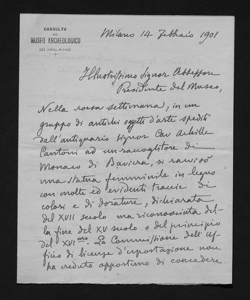 CONSULTA
DEL
MUSEO ARCHEOLOGICO
DI MILANO
Milano 14 Febbraio 1901
Illustrissimo Signor Assessore
Presidente del Museo,
Nella scorsa settimana, in un
gruppo di antichi oggetti d'arte spedito
dall'antiquario Signor Cav Achille
Cantoni ad un raccoglitore di
Monaco di Baviera, si ravvisò
una statua femminile in legno
con molte ed evidenti traccie di
colori e di dorature, dichiarata
del XVII secolo ma riconosciuta del-
la fine del XV secolo o del principio
del XVI mo. La Commissione dell'Uf-
ficio di licenze d'esportazione non
ha creduto opportuno di concedere